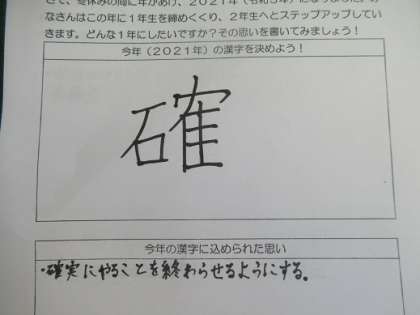 さて、冬休みの間に年があけ、2021年(令和3年)になりました。み
なさんはこの年に1年生を締めくくり、2年生へとステップアップしてい
きます。どんな1年にしたいですか?その思いを書いてみましょう!
今年(2021年)の漢字を決めよう!
確
今年の漢字に込められた思い
・確実にやることを終わらせるようにする。